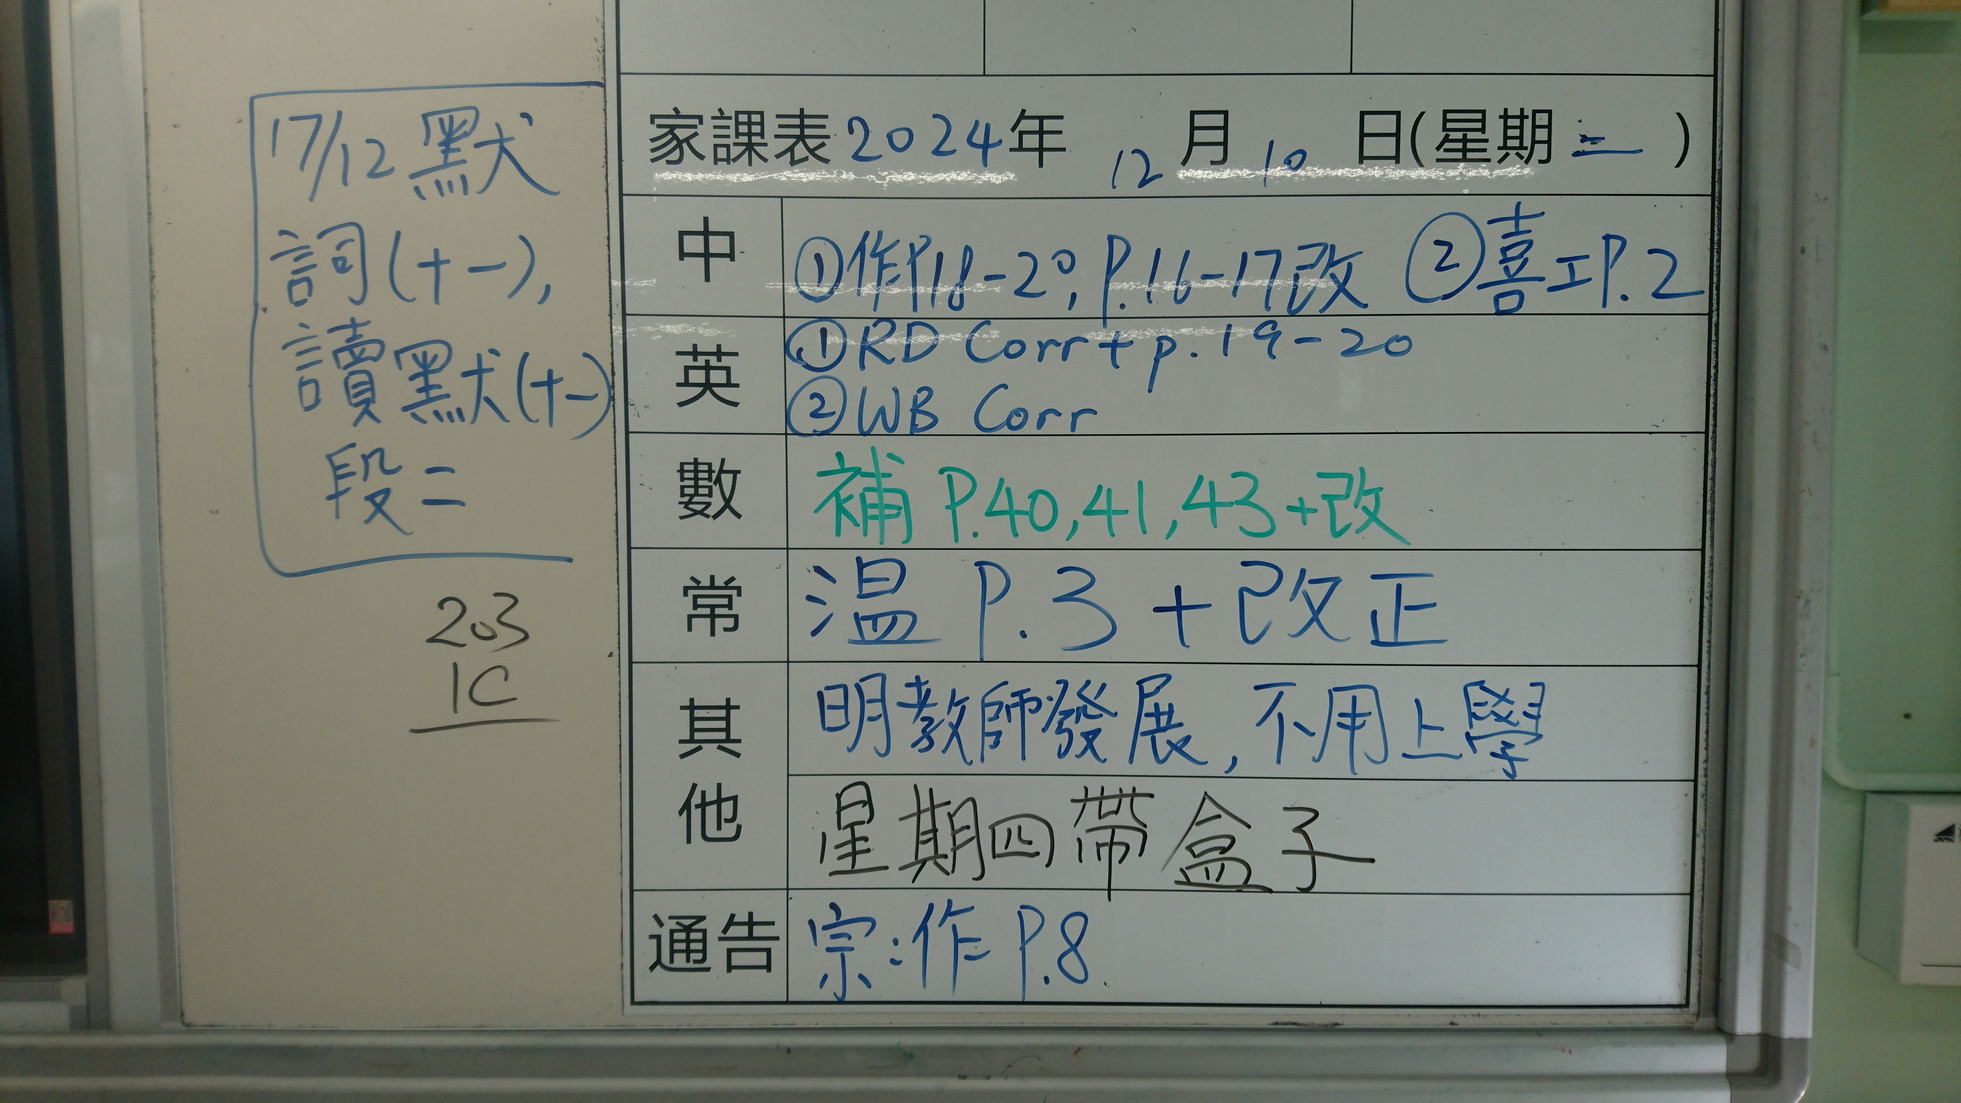 17/12 默
詞(十一),
讀默(十一)
段二
203
1C
家課表2024年 12月10日(星期二)
中 ①作P.18-20, P.16-17改 ②喜工P.2
英 ①RD Corr + p.19-20
②WB Corr
數 補 P.40,41,43+改
常 温 P.3 + 改正
其他 明教師發展,不用上學
星期四帶盒子
通告 宗:作 P.8